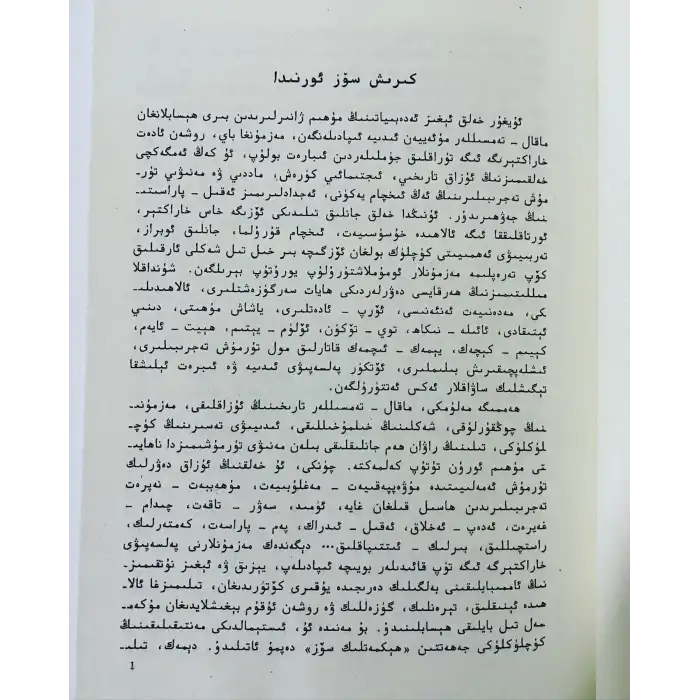 كىرىش سۆز ئورنىدا
ئۇيغۇر خەلق ئېغىز ئەدەبىياتىنىڭ مۇھىم ژانىرلىرىدىن بىرى ھېسابلانغان
ماقال – تەمسىللەر مۇئەييەن ئىدىيە ئىپادىلەنگەن، مەزمۇنغا باي، روشەن ئادەت
خاراكتېرگە ئىگە تۇراقلىق جۈملىلەردىن ئىبارەت بولۇپ، ئۇ كەڭ ئەمگەكچى
خەلقىمىزنىڭ ئۇزاق تارىخىي، ئىجتىمائىي كۈرەش، ماددىي ۋە مەنىۋىي تۇر-
مۇش تەجرىبىلىرىنىڭ ئەڭ ئىخچام يەكۈنى، ئەجدادلىرىمىز ئەقىل – پاراسىتى-
نىڭ جەۋھىرىدۇر. ئۇنىڭدا خەلق جانلىق تىلىدىكى ئۆزىگە خاس خاراكتېر،
ئورتاقلىققا ئىگە ئالاھىدە خۇسۇسىيەت، ئىخچام قۇرۇلما، جانلىق ئوبراز،
تەربىيىۋى ئەھمىيىتى كۈچلۈك بولغان ئۆزگىچە بىر خىل تىل شەكلى ئارقىلىق
كۆپ تەرەپلىمە مەزمۇنلار ئومۇملاشتۇرۇلۇپ يورۇتۇپ بېرىلگەن. شۇنداقلا
مىللىتىمىزنىڭ ھەرقايسى دەۋرلەردىكى ھايات سەرگۈزەشتلىرى، ئالاھىدىلى-
كى، مەدەنىيەت ئەنئەنىسى، ئۆرپ – ئادەتلىرى، ياشاش مۇھىتى، دىنىي
ئېتىقادى، ئائىلە – نىكاھ، توي – تۆكۈن، ئۆلۈم – يېتىم، ھېيت – ئايەم،
كىيىم – كېچەك، يېمەك – ئىچمەك قاتارلىق مول تۇرمۇش تەجرىبىلىرى،
ئىشلەپچىقىرىش بىلىملىرى، ئۆتكۈر پەلسەپىۋى ئىدىيە ۋە ئىبرەت ئېلىشقا
تېگىشلىك ساۋاقلار ئەكس ئەتتۈرۈلگەن.
ھەممىگە مەلۇمكى، ماقال – تەمسىللەر تارىخىنىڭ ئۇزاقلىقى، مەزمۇنى-
نىڭ چوڭقۇرلۇقى، شەكلىنىڭ خىلمۇخىللىقى، ئىدىيىۋى تەسىرىنىڭ كۈچ-
لۈكلۈكى، تىلىنىڭ راۋان ھەم جانلىقلىقى بىلەن مەنىۋى تۇرمۇشىمىزدا ناھايى-
تى مۇھىم ئورۇن تۇتۇپ كەلمەكتە. چۈنكى، ئۇ خەلقنىڭ ئۇزاق دەۋرلىك
تۇرمۇش ئەمەلىيىتىدە مۇۋەپپەقىيەت – مەغلۇبىيەت، مۇھەببەت – نەپرەت
تەجرىبىلىرىدىن ھاسىل قىلغان غايە، ئۈمىد، سەۋر – تاقەت، چىدام –
غەيرەت، ئەدەپ – ئەخلاق، ئەقىل – ئىدراك، پەم – پاراسەت، كەمتەرلىك،
راستچىللىق، بىرلىك – ئىتتىپاقلىق… دېگەندەك مەزمۇنلارنى پەلسەپىۋى
خاراكتېرگە ئىگە تۈپ قائىدىلەر بويىچە ئىپادىلەپ، يېزىق ۋە ئېغىز نۇتقىمىز-
نىڭ ئاممىبابلىقىنى بەلگىلىك دەرىجىدە يۇقىرى كۆتۈرىدىغان، تىلىمىزغا ئالا-
ھىدە ئېنىقلىق، تېرەنلىك، گۈزەللىك ۋە روشەن ئۇقۇم بېغىشلايدىغان مۇكەم-
مەل تىل بايلىقى ھېسابلىنىدۇ. بۇ مەنىدە ئۇ، ئىستېمالدىكى مەنتىقىلىقىنىڭ
كۈچلۈكلۈكى جەھەتتىن «ھېكمەتلىك سۆز» دەپمۇ ئاتىلىدۇ. دېمەك، تىلى-
1